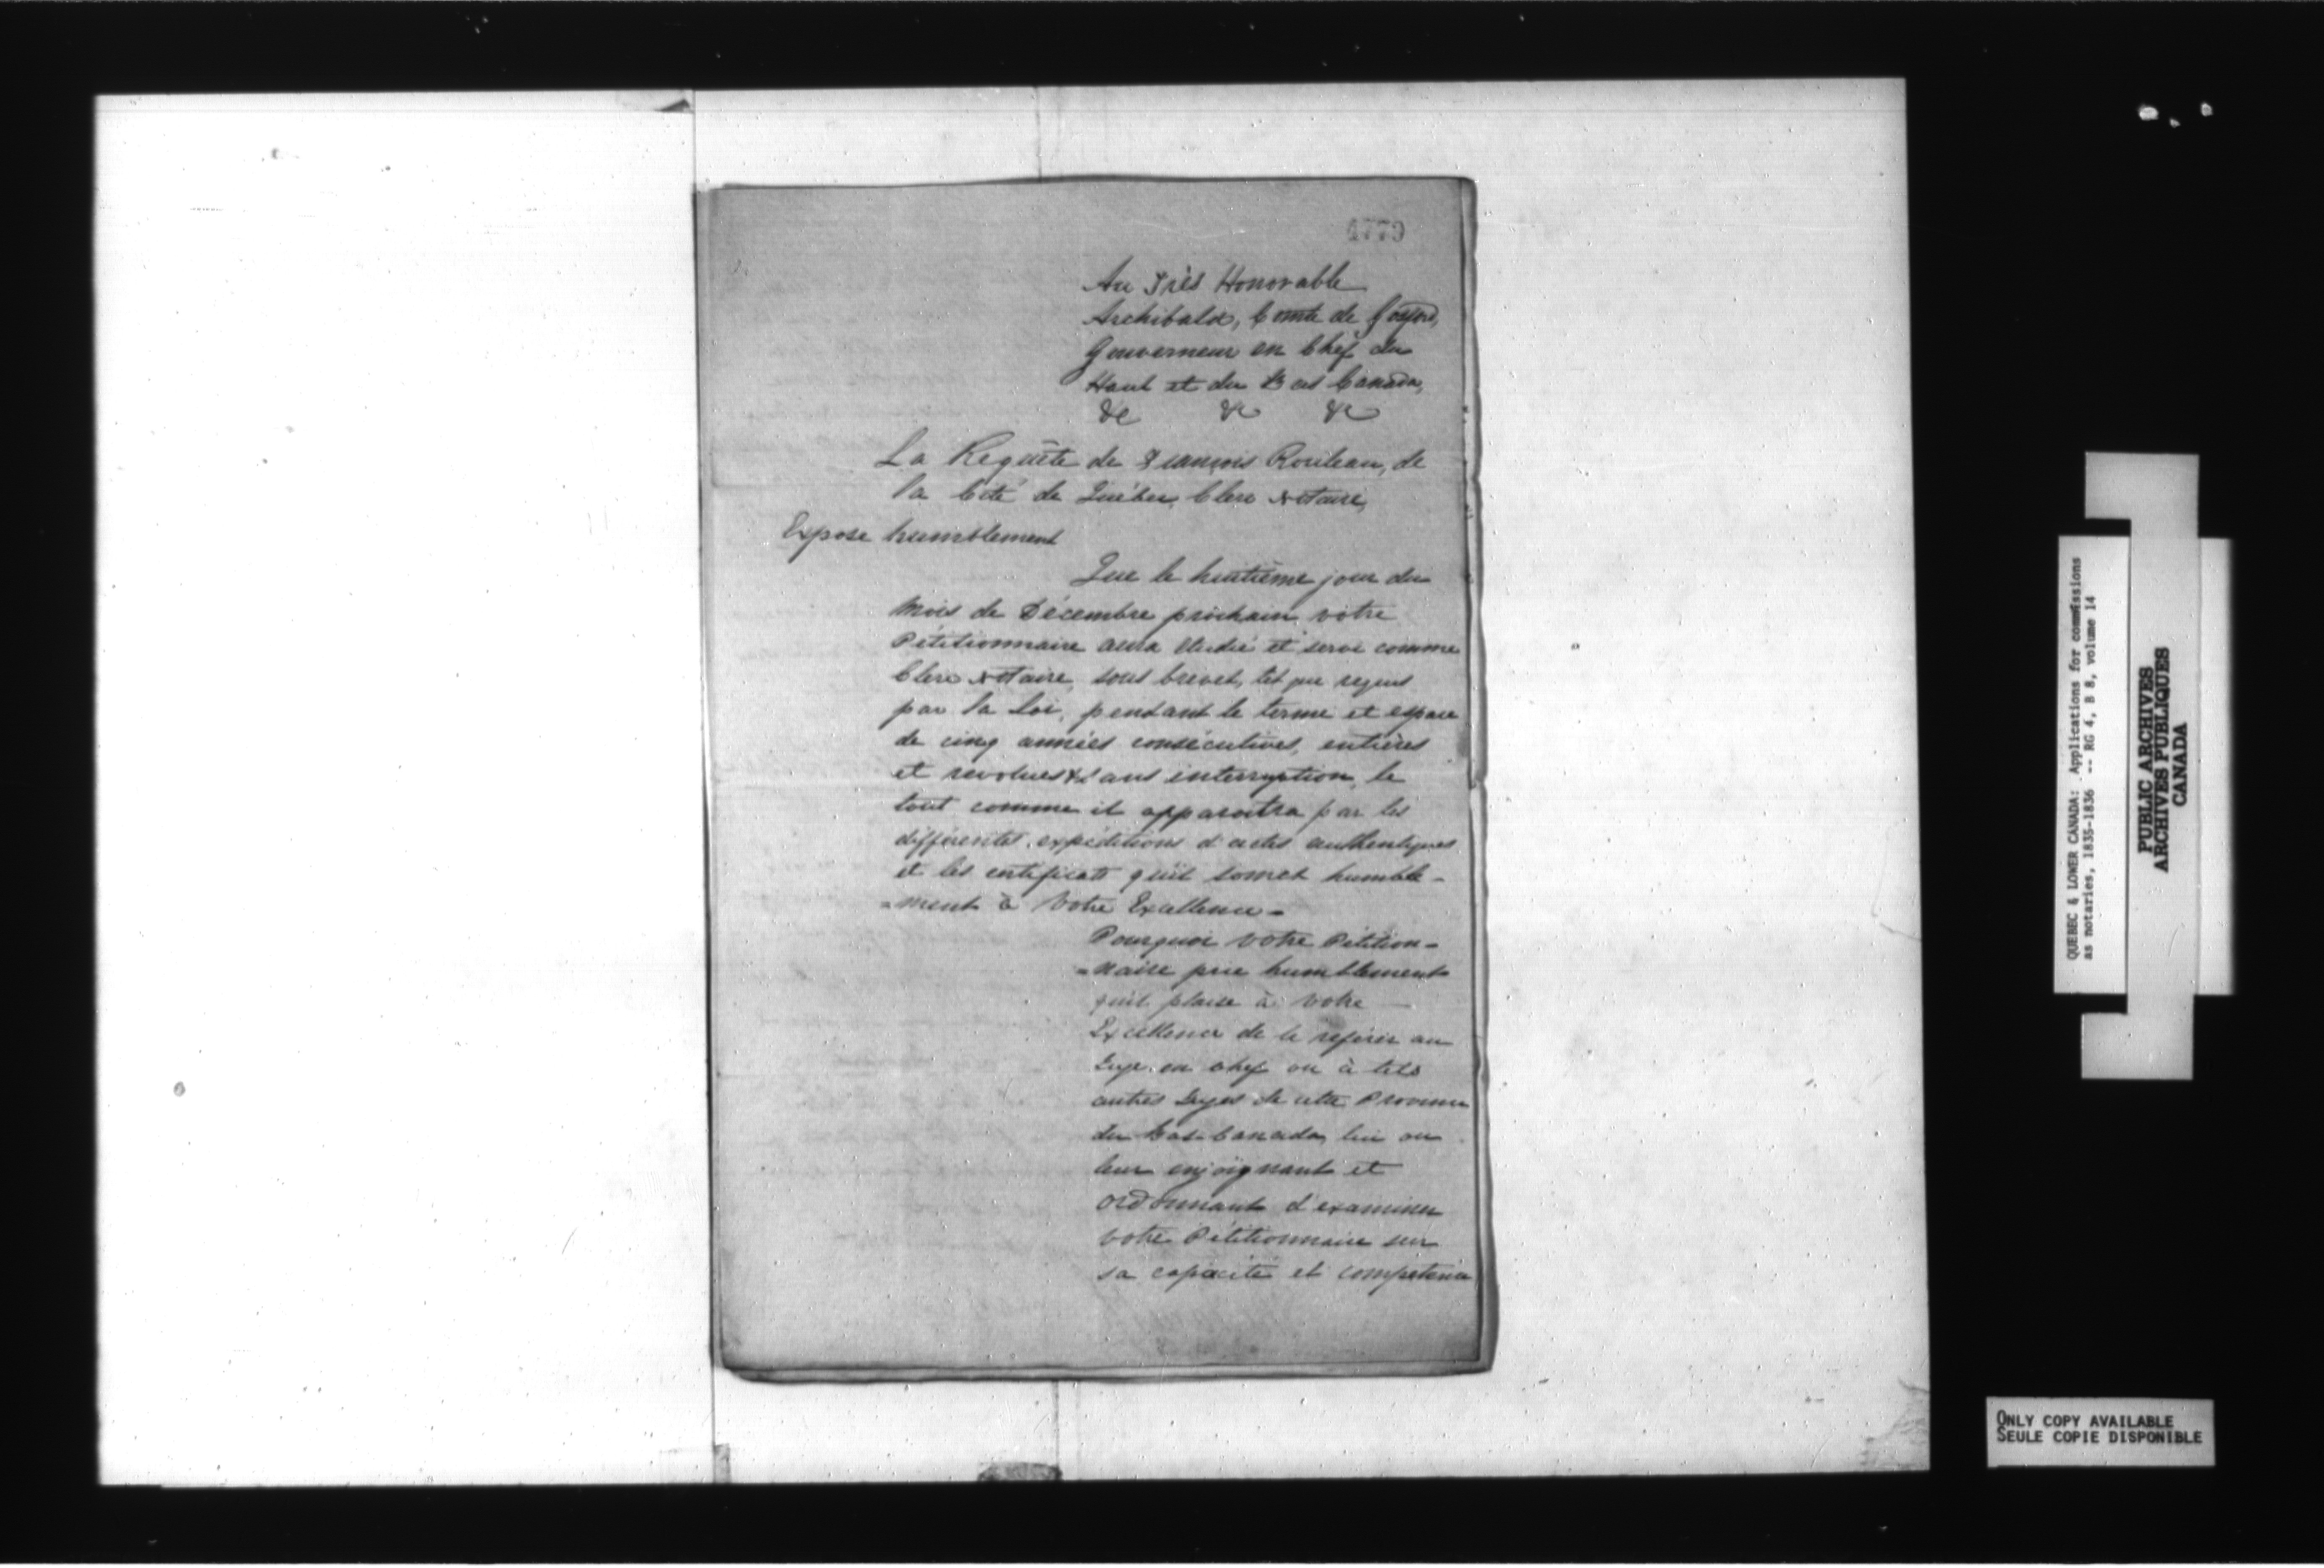 4779
Au Très Honorable
Archibald, Comte de Gosford,
Gouverneur en Chef du
Haut et du Bas Canada,
&c &c &c
La Requête de François Rouleau, de
la Cité de Québec, Clerc Notaire,
Expose humblement
Que le huitième jour du
mois de Décembre prochain, votre
Pétitionnaire aura étudié et servi comme
Clerc Notaire, sous brevet, tel que requis
par la Loi, pendant le terme et espace
de cinq années consécutives, entières
et revolues & sans interruption, le
tout comme il apparoitra par les
différentes expéditions d'actes authentiques
et les certificats qu'il somet humble-
=ment à Votre Excellence-
Pourquoi votre Pétition-
=naire prie humblement
qu'il plaise à Votre
Excellence de le référer au
Juge en chef ou à tels
autres Juges de cette Province
du Bas-Canada, lui ou
leur enjoignant et
ordonnant d'examiner
votre Pétitionnaire sur
sa capacité et competence
QUEBEC & LOWER CANADA: Applications for commissions
as notaries, 1835-1836 -- RG 4, B 8, volume 14
PUBLIC ARCHIVES
ARCHIVES PUBLIQUES
CANADA
ONLY COPY AVAILABLE
SEULE COPIE DISPONIBLE